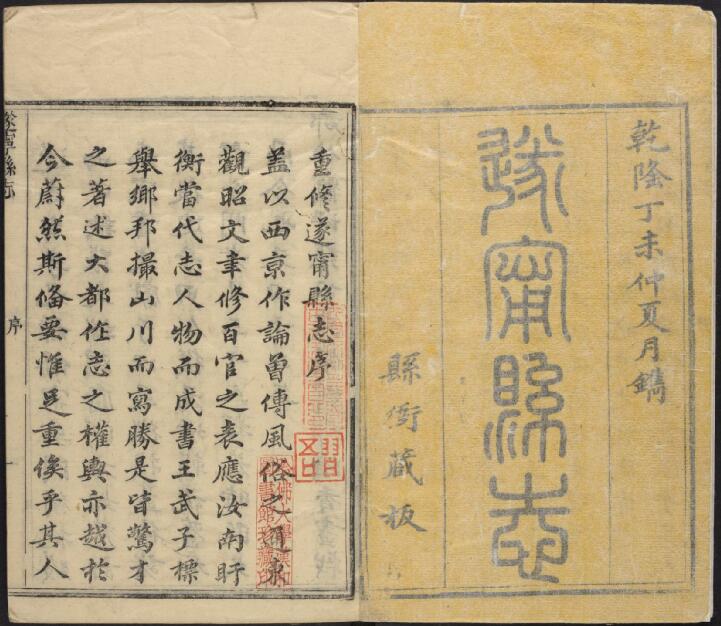 乾隆丁未仲夏月鐫
遂甯縣志
縣衙藏板
重修遂甯縣志序
蓋以西京作論曾傳風俗之通東
觀昭文聿修百官之表應汝南盱
衡當代志人物而成書王武子標
舉鄉邦撮山川而寫勝是皆驚才
之著述大都作志之權輿亦越於
今蔚然斯備要惟足重俟乎其人
遂寧縣志
序